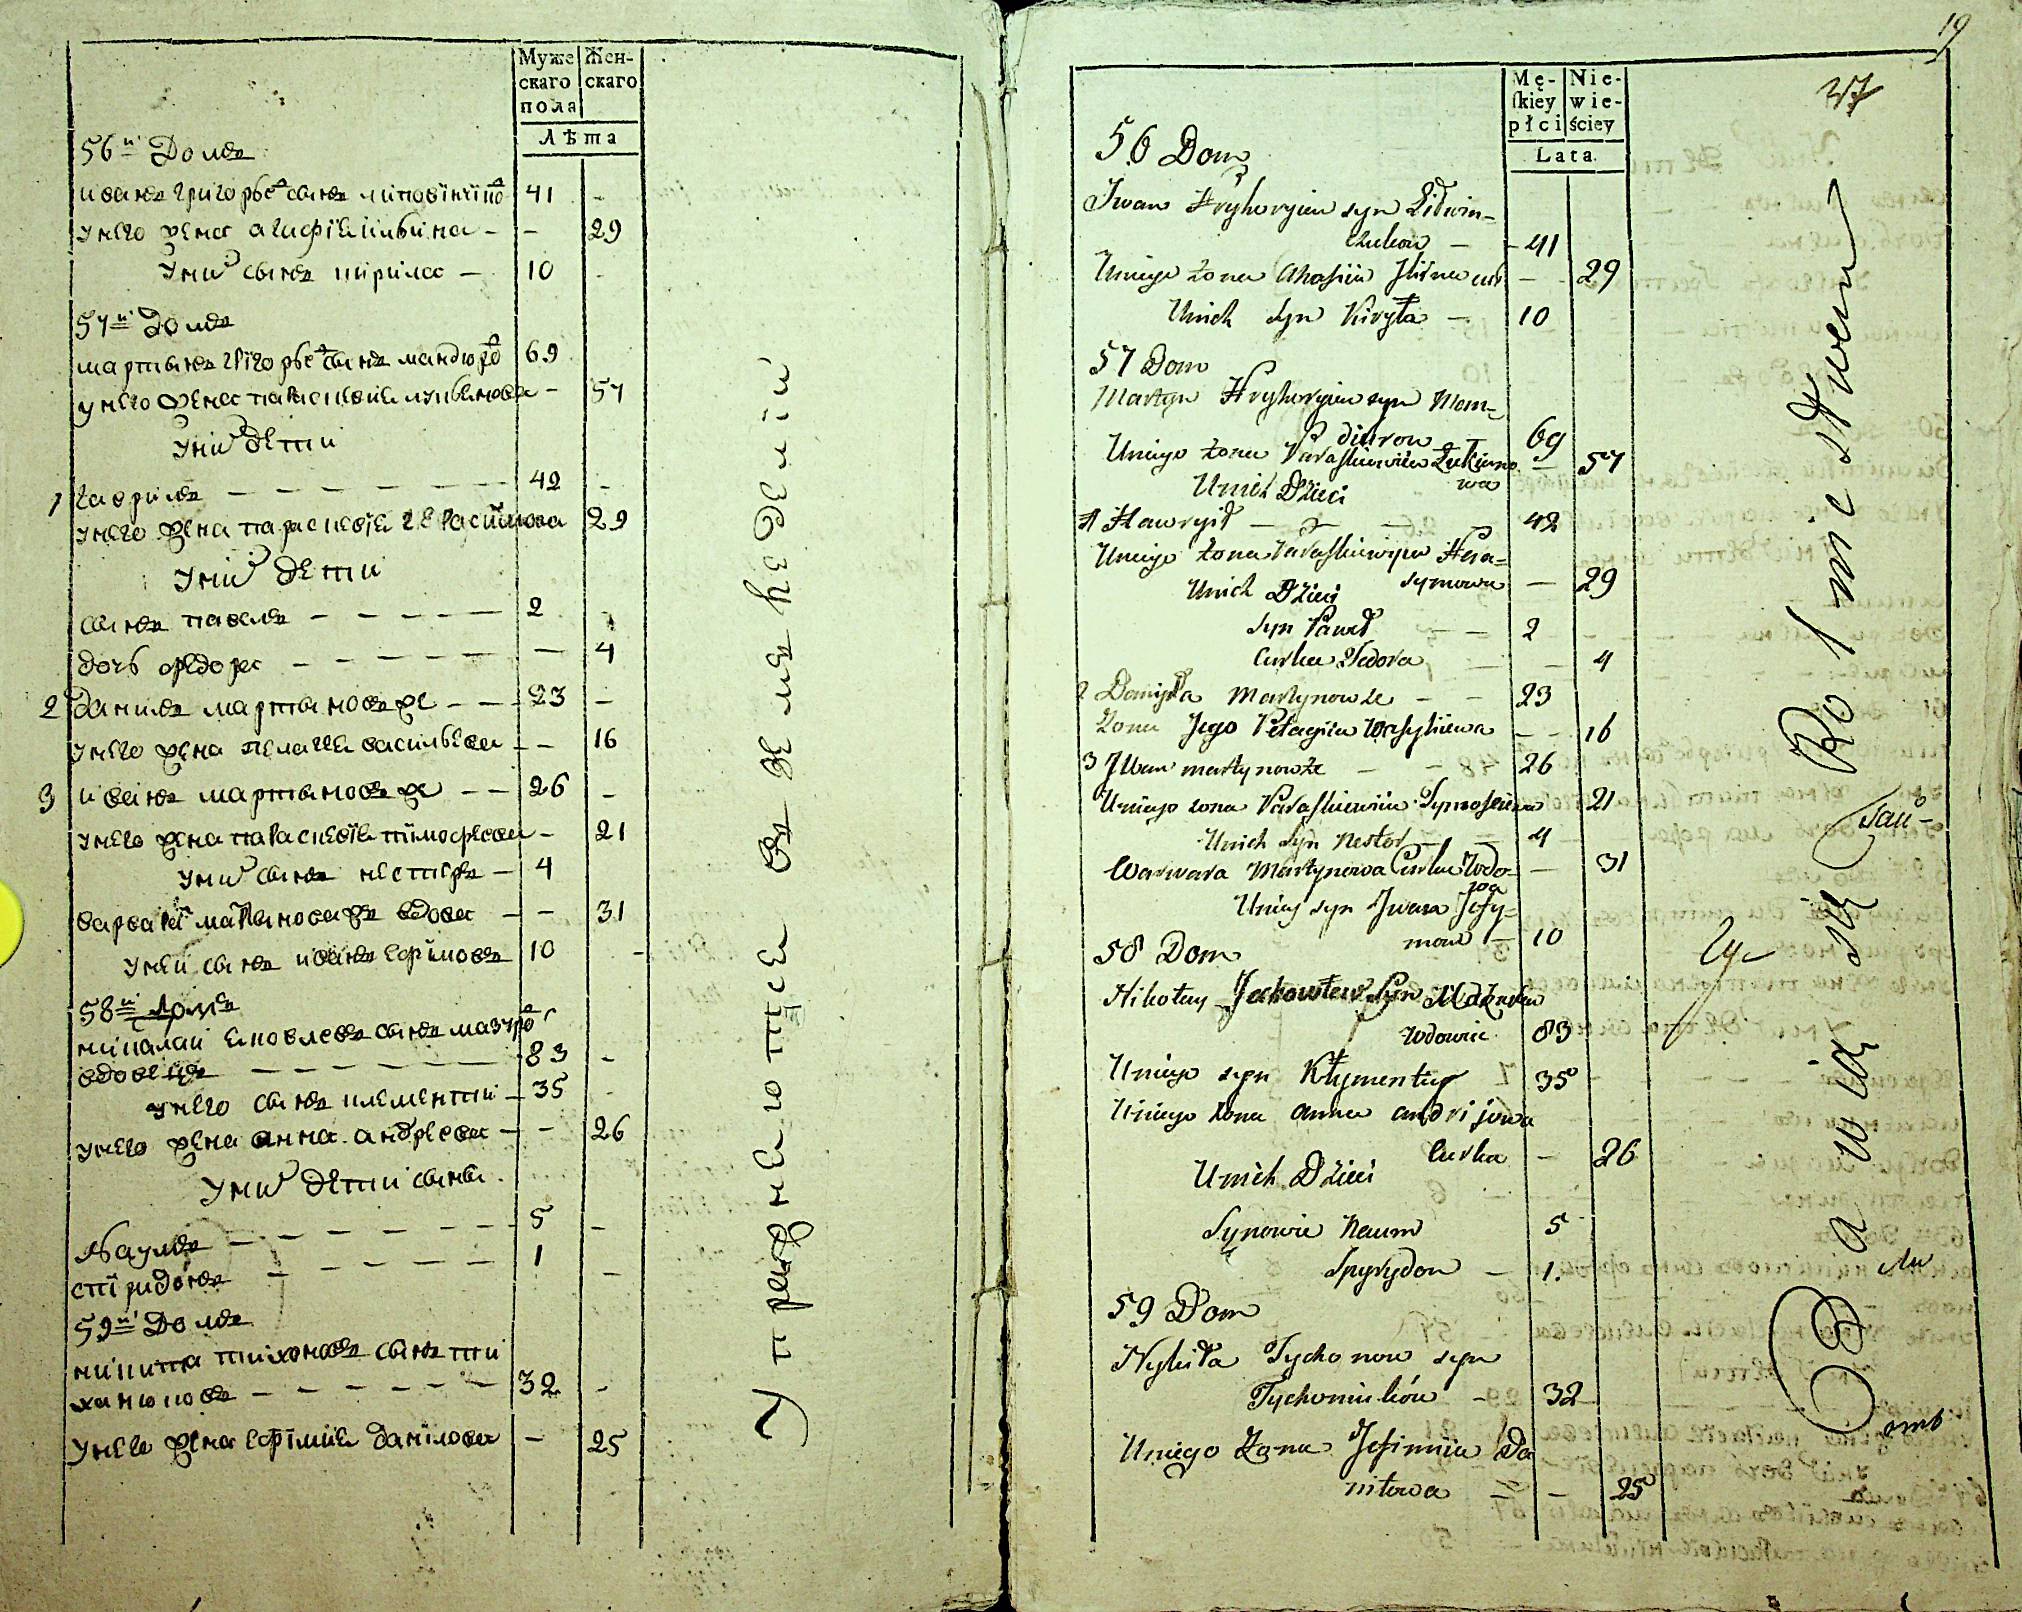 Муже
скаго
пола
Жен-
скаго
Лѣта
56й Домъ
иванъ григорьевъ сынъ литовчуковъ 41 -
унего жена агафїя ильина - - 29
Уних сынъ кирила - 10 -
57й Домъ
мартынъ григорьевъ сынъ мандюровъ 69
унего жена параскевия лукьянова - 57
Уних дети
1 гаврила - - - - - - 42 -
унего жена параскевїя герасимова 29
Уних дети
сынъ павелъ - - - - - 2 -
дочь федора - - - - - - 4
2 данила мартыновъ же - - - 23 -
унего жена пелагея васильева - - 16
3 иванъ мартыновъ же - - 26 -
унего жена параскевїя тимофеева - 21
Уних сынъ нестеръ - 4
варвара мартынова же вдова - - 31
унеи сынъ иванъ ефимовъ 10 -
58й Домъ
николай яковлевъ сынъ мазуръ
вдовецъ - - - - - - 83 -
унего сынъ климентий - 35 -
унего жена анна андреева - - 26
Уних дети сыны
Наумъ - - - - - - 5 -
спиридонъ - - - - - - 1 -
59й Домъ
никита тихоновъ сынъ ти
хонюковъ - - - - - - 32 -
унего жена ефимия данилова - 25
Упразнеютсе въ земле неделий
19
37
Mę-
skiey
płci
Nie-
wie-
ściey
Lata.
56 Dom
Iwan Hryhoryiew syn Litwin-
czukow - - 41
Uniego żona Ahafiia Iliina cur - - 29
Unich syn Kiryła - 10
57 Dom
Martyn Hryhoryiew syn Mom-
diurow 69
Uniego żona Paraskiewiia Łukiano - 57
wa
Unich Dzieci
1 Hawryił - - - 42
Uniego żona Paraskiewyia Hera-
symowa - 29
Unich Dzieci
syn Paweł - - 2
Curka Fedora - - 4
2 Danyiła Martynow że - - 23
Żona Jego Pełagiia Wasyliiewa - - 16
3 Iwan martynowże - 26
Uniego żona Paraskiewiia Tymofiiewa 21
Unich syn Nestor - - 4
Warwara Martynowa Curka Wdo- - 31
wa
Uniey syn Iwan Jefy-
mow - 10
58 Dom
Nikołay Jakowlew syn Mazurka
wdowiec 83
Uniego syn Kłymentiy 35
Uniego żona Anna Andrijowa
Curka - 26
Unich Dzieci
Synowie Naum 5
Spyrydon - 1.
59 Dom
Nykita Tychonow syn
Tychoniuków - 32
Uniego Żona Jefimiia Da
niłowa - - 25